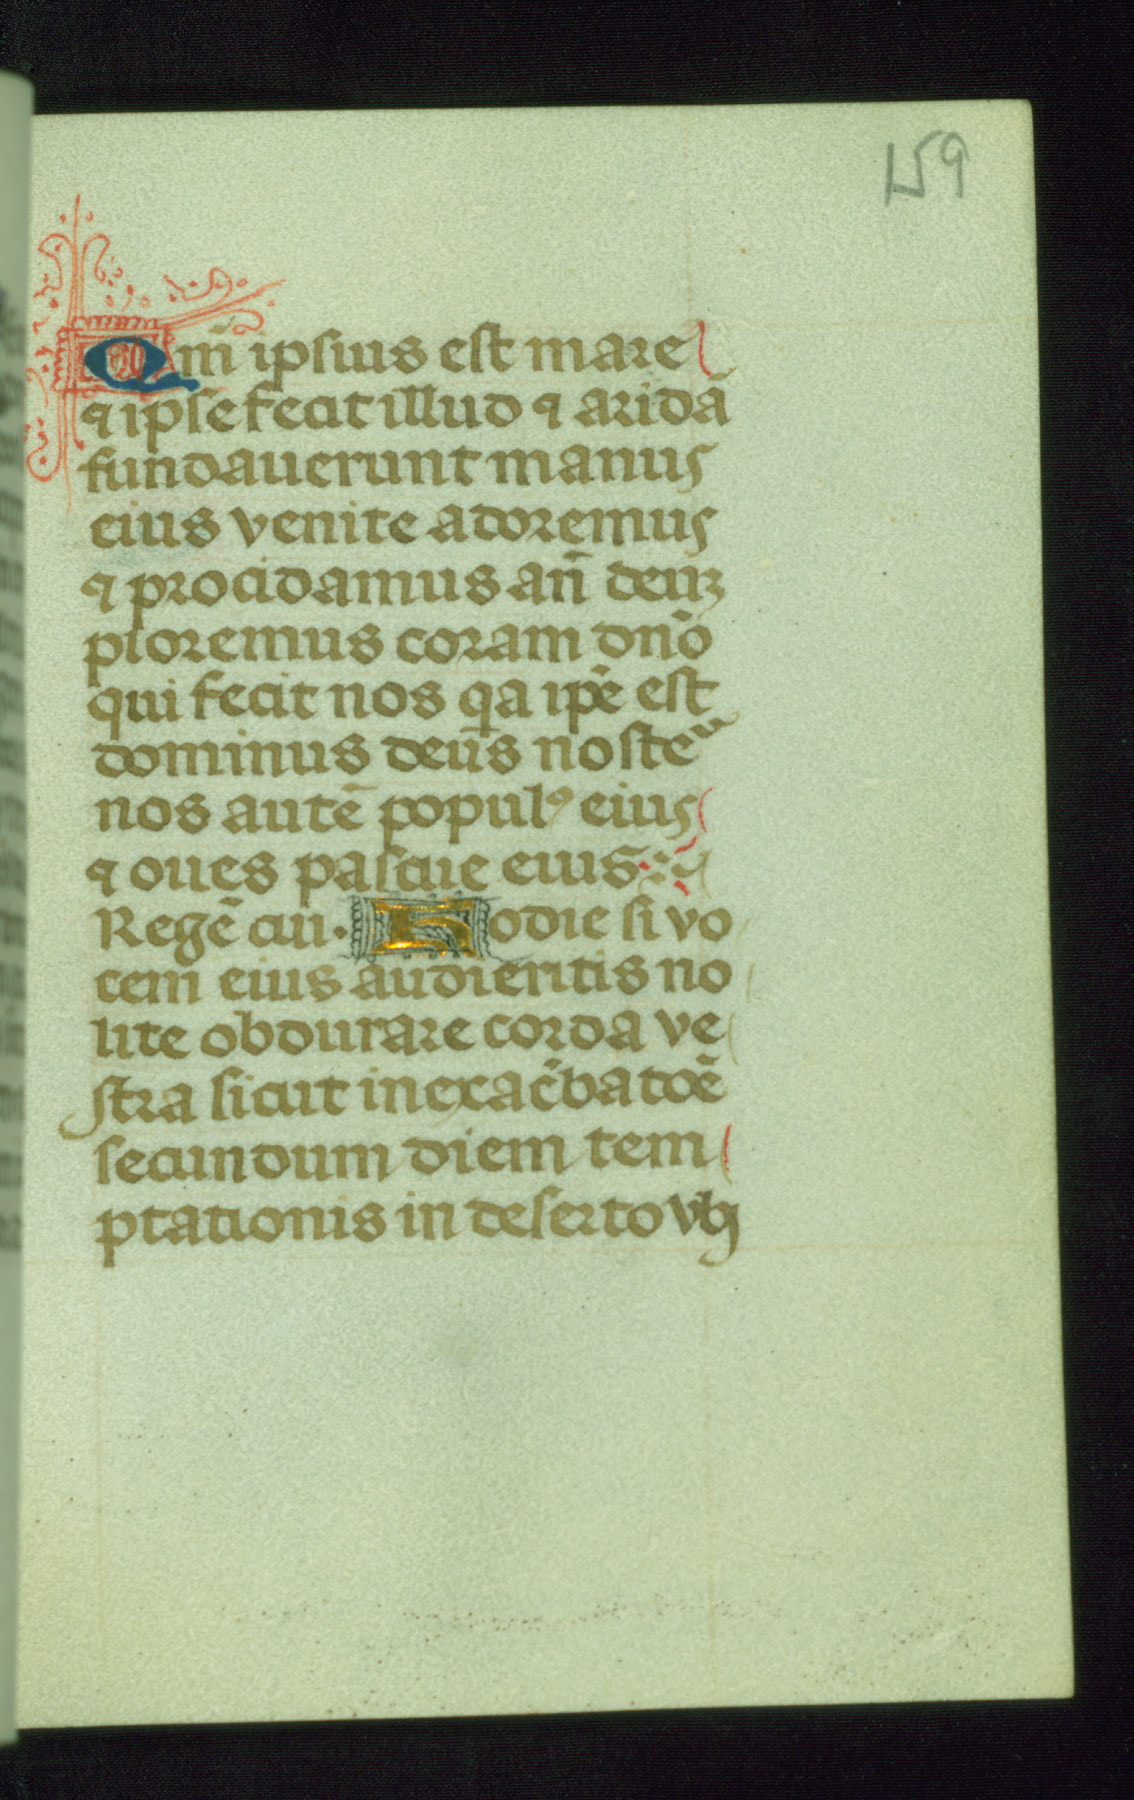 159
Qm̄ ipsius est mare
⁊ ipse fecit illud ⁊ arida
fundauerunt manus
eius venite adoremus
⁊ procidamus an̄ deuꝫ
ploremus coram dn̄o
qui fecit nos qa ip̄e est
dominus deus noste
nos autē popul⁹ eius
⁊ oues pascue eius
Regē cui. Hodie si vo
cem eius audieritis no
lite obdurare corda ve
stra sicut in exac̄batōē
secundum diem tem
ptationis in deserto vbi